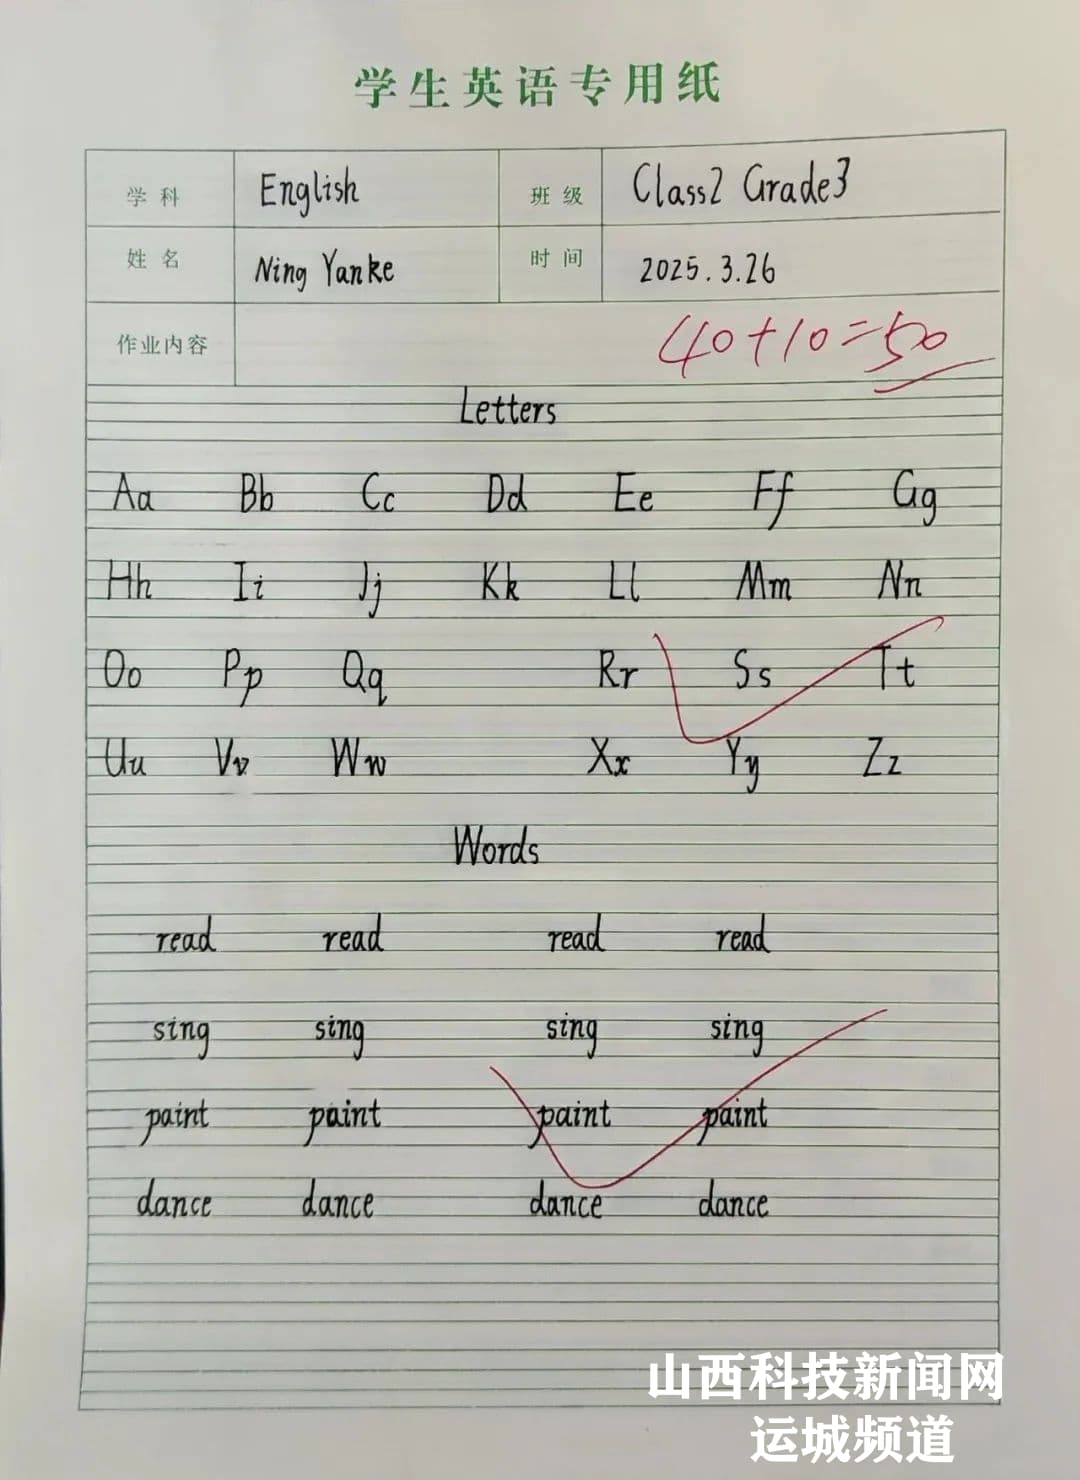 学生英语专用纸
学科 English 班级 Class2 Grade3
姓名 Ning Yanke 时间 2025.3.26
作业内容 40+10=50
Letters
Aa Bb Cc Dd Ee Ff Gg
Hh Ii Jj Kk Ll Mm Nn
Oo Pp Qq Rr Ss Tt
Uu Vv Ww Xx Yy Zz
Words
read read read read
sing sing sing sing
paint paint paint paint
dance dance dance dance
山西科技新闻网
运城频道